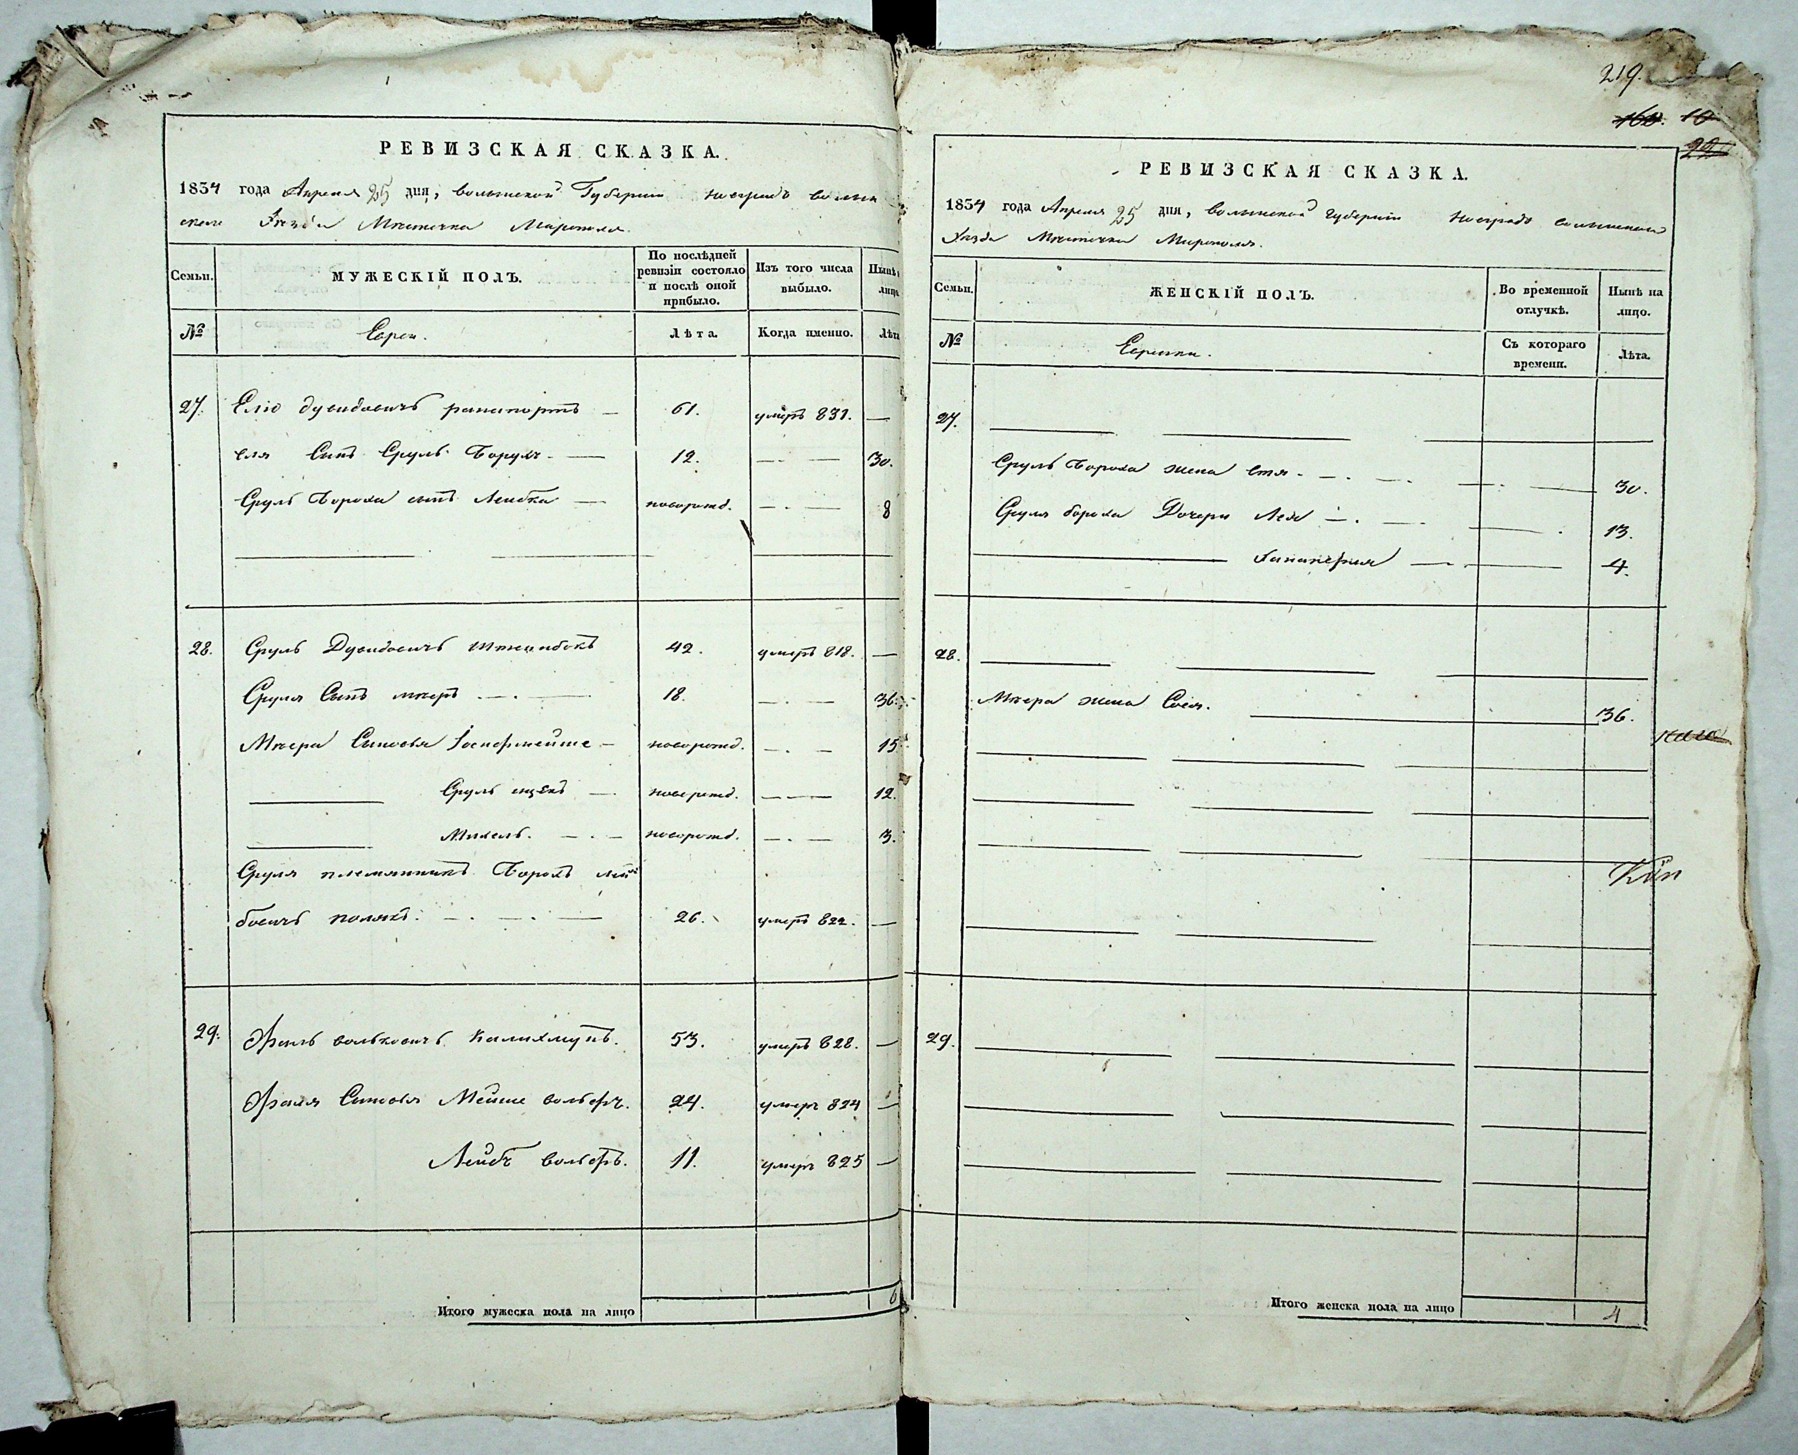 РЕВИЗСКАЯ СКАЗКА.
1834 года Апреля 25 дня, волынской Губернии новградъ волын
скаго Уезда Местечка Мирополя.
Семьи.
МУЖЕСКІЙ ПОЛЪ.
По послѣдней ревизіи состояло и послѣ оной прибыло.
Изъ того числа выбыло.
Нынѣ лица
№
Евреи.
Лѣта.
Когда именно.
Лѣта
27. Еліо Дувидовичъ рапапортъ — 61. умеръ 831. —
его Сынъ Сруль Борухъ — 12. — 30.
Сруль Бороха сынъ Лейбка — новорожд. — 8
28. Сруль Дувидовичъ 42. умеръ 818. —
Сруля Сынъ мееръ — 18. — 36.
Меера Сыновья — новорожд. — 15
Сруль ицекъ — новорожд. — 12.
Михель. — новорожд. — 3.
Сруля племянникъ Борохъ лей
бовичъ полякъ. — 26. умеръ 822. —
29. Фроль волковичъ 53. умеръ 828. —
Фроля Сыновья Мейше вольфъ. 24. умеръ 824 —
Лейбъ вольфъ. 11. умеръ 825 —
Итого мужеска пола на лицо 6
219.
160. 10
22
РЕВИЗСКАЯ СКАЗКА.
1834 года Апреля 25 дня, волынской губерніи новградъ волынскаго
Уезда Местечка Мирополя.
Семьи.
ЖЕНСКІЙ ПОЛЪ.
Во временной отлучкѣ.
Нынѣ на лицо.
№
Еврейки.
Съ котораго времени.
Лѣта.
27.
Сруль Бороха жена Етя — 30.
Сруля бороха Дочери Лея — 13.
4.
28.
Меера жена Сося. 36.
29.
Итого женска пола на лицо 4